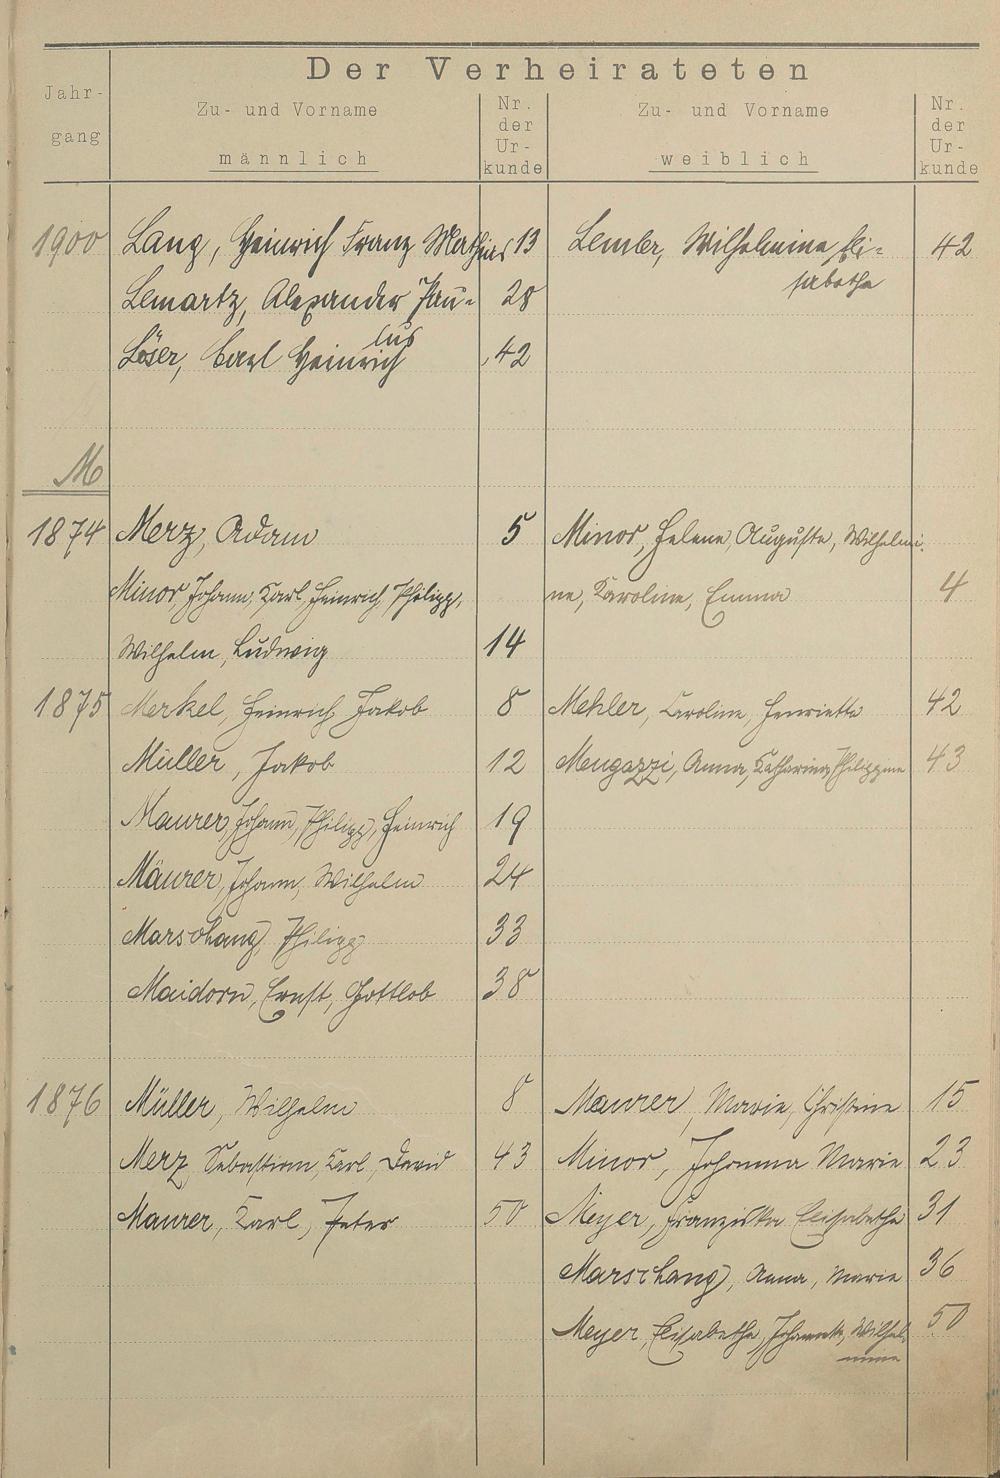 Der Verheirateten
Jahrgang
Zu- und Vorname
männlich
Nr. der Urkunde
Zu- und Vorname
weiblich
Nr. der Urkunde
1900 Lang, Heinrich Franz Mathias 13 Lember, Wilhelmine Eli- 42
sabetha
Lemartz, Alexander Pau- 28
lus
Löser, Carl Heinrich 42
M
1874 Merz, Adam 5 Minor, Helene, Auguste, Wilhelmi-
Minor, Johann, Karl, Heinrich, Philipp, ne, Karoline, Emma 4
Wilhelm, Ludwig 14
1875 Merkel, Heinrich, Jakob 8 Mehler, Caroline, Henriette 42
Müller, Jakob 12 Mengazzi, Anna, Katharina, Philippine 43
Maurer, Johann, Philipp, Heinrich 19
Mäurer, Johann, Wilhelm 24
Marschang, Philipp 33
Maidorn, Ernst, Gottlob 38
1876 Müller, Wilhelm 8 Maurer, Marie, Christine 15
Merz, Sebastian, Karl, David 43 Minor, Johanna Marie 23
Maurer, Karl, Peter 50 Meyer, Franziska Elisabetha 31
Marschang, Anna, Marie 36
Meyer, Elisabetha, Wilhel- 50
mine